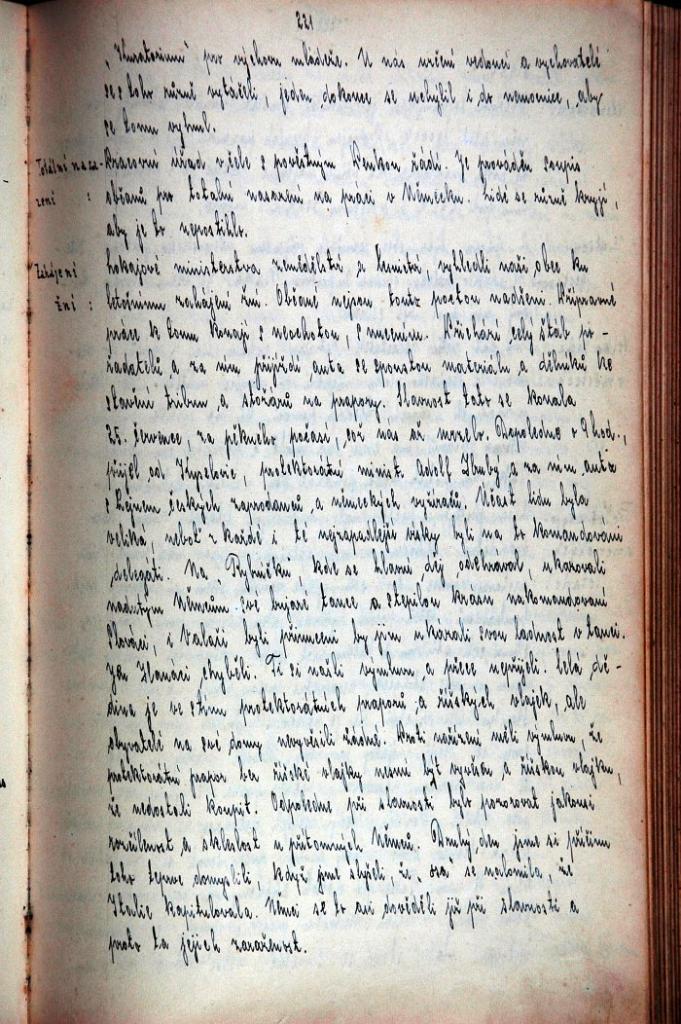 221
"Kuratorium" pro výchovu mládeže. U nás určení vedoucí a vychovatelé
se z toho různě vytáčeli, jeden dokonce se uchýlil i do nemocnice, aby
se tomu vyhnul.
Totální nasa-
zení :
Pracovní úřad v čele s pověstným Penkou řádí. Je prováděn soupis
občanů pro totální nasazení na práci v Německu. Lidé se různě kryjí,
aby je to nepostihlo.
Zahájení
žní :
Lokajové ministerstva zemědělství, s Hruští, vyhledli naši obec ku
letošnímu zahájení žní. Občané nejsou touto poctou nadšeni. Přípravné
práce k tomu konají s neochotou, s nucením. Přichází celý štáb po-
řadatelů a za ním přijíždí auta se spoustou materiálu a dělníků ke
stavění tribun a stožárů na prapory. Slavnost tato se konala
25. července, za pěkného počasí, což nás až mrzelo. Dopoledne v 9 hod.,
přijel od Kyselovic, protektorátní minist. Adolf Hrubý a za ním auta
s hejnem českých zaprodanců a německých vyžíračů. Účast lidu byla
veliká, neboť z každé i té nejzapadlejší vísky byli na to komandováni
delegáti. Na "Rybníčku", kde se hlavní děj odehrával, ukazovali
nadutým Němcům své bujaré tance a ztepilou krásu nakomandovaní
Slováci, i Valaši byli přinuceni by jim ukázali svou ladnost v tanci.
Jen Hanáci chyběli. Ti si našli výmluvu a přece nepřijeli. Celá dě-
dina je ve stínu protektorátních praporů a říšských vlajek, ale
obyvatelé na své domy nevyvěsili žádné. Proti nařízení měli výmluvu, že
protektorátní prapor bez říšské vlajky nesmí být vyvěšen a říškou vlajku,
že nedostali koupit. Odpoledne při slavnosti bylo pozorovat jakousi
rozčilenost a sklíčenost u přítomných Němců. Druhý den jsme si příčinu
toho teprve domyslili, když jsme slyšeli, že "osa" se nalomila, že
Italie kapitulovala. Němci se to asi dověděli již při slavnosti a
proto ta jejich zaraženost.